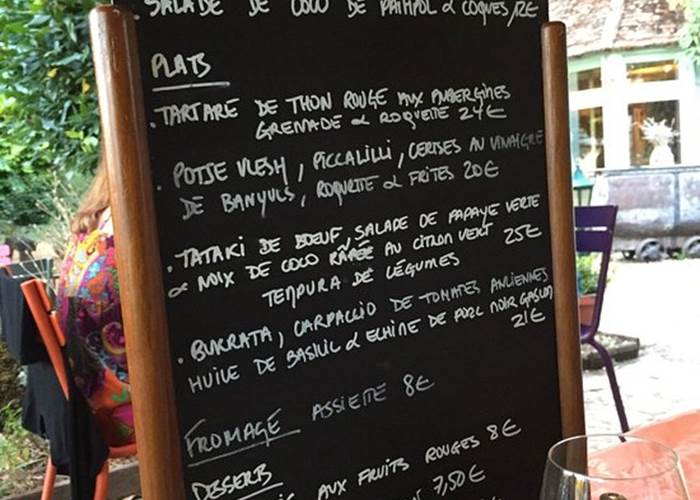 SALADE DE COCO DE PAIMPOL & COQUES/12€
PLATS
. TARTARE DE THON ROUGE AUX AUBERGINES
GRENADE & ROQUETTE 24€
. POTJE VLESH, PICCALILLI, CERISES AU VINAIGRE
DE BANYULS, ROQUETTE & FRITES 20€
. TATAKI DE BŒUF, SALADE DE PAPAYE VERTE
& NOIX DE COCO RÂPÉE AU CITRON VERT 25€
TEMPURA DE LÉGUMES
. BURRATA, CARPACCIO DE TOMATES ANCIENNES
HUILE DE BASILIC & ECHINE DE PORC NOIR GASCON
21€
FROMAGE ASSIETTE 8€
DESSERTS
AUX FRUITS ROUGES 8€
7,50€